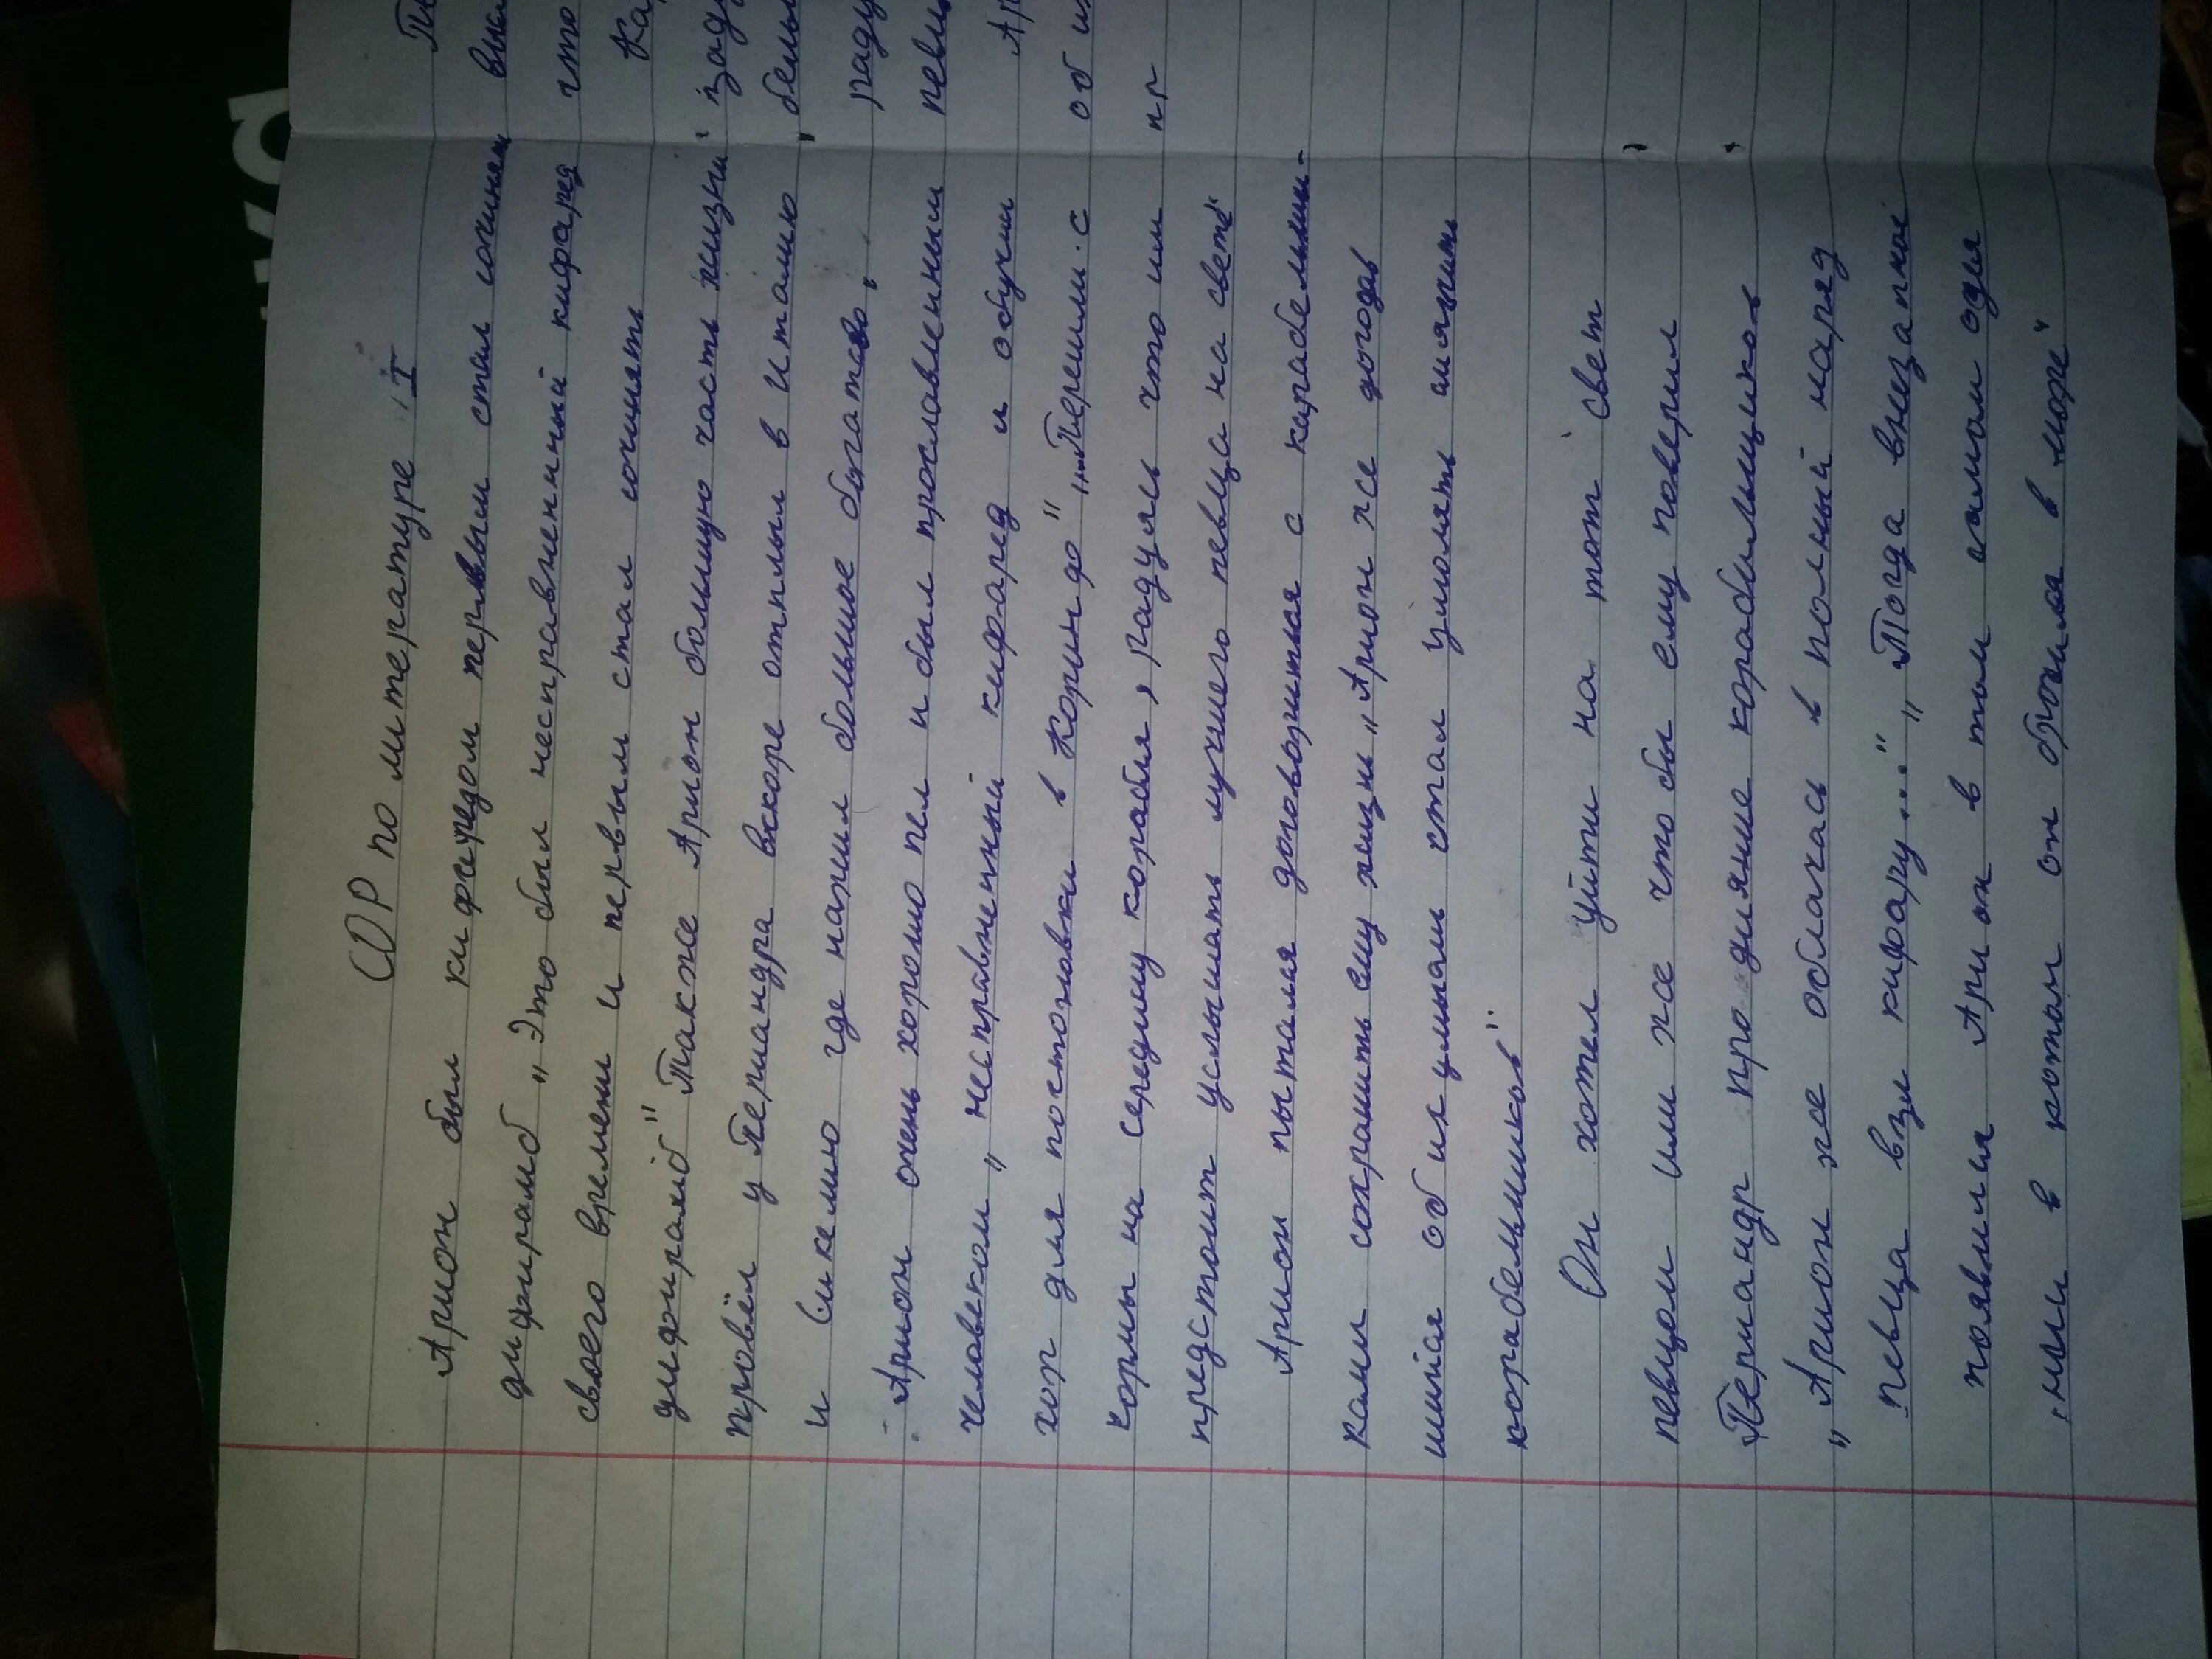 СОР по литературе I
Арион был кифаредом первым стал сочинять
дифирамб „Это был несправненный кифаред
своего времени и первым стал сочинять
дифирамб" Также Арион большую часть жизни
провёл у Периандра вскоре отплыл в Италию
и Сикелию где нажил большое багатсво,
Арион очень хорошо пел и был прославленным
человеком „несправненный кифаред и обучил
хор для постоновки в Коринфо" „Перешли с
кормы на середину корабля, радуясь что им
предстоит услышать лучшего певца на свете"
Арион пытался договориться с карабельщи-
ками сохранить ему жизнь „Арион же догодав
шийся об их умысли стал умолять смягчит
корабельщиков"
Он хотел уйти на тот свет
певцом или же что бы ему поверил
Периандр про дияние корабильщиков
„Арион же облачась в полный наряд
певца взял кифару..." „Тогда внезапно
появился Арион в том самом оде
янии в котом он бросился в море"
вы
что
Ка
заду
белы
раду
певц
Ар
об их
пр